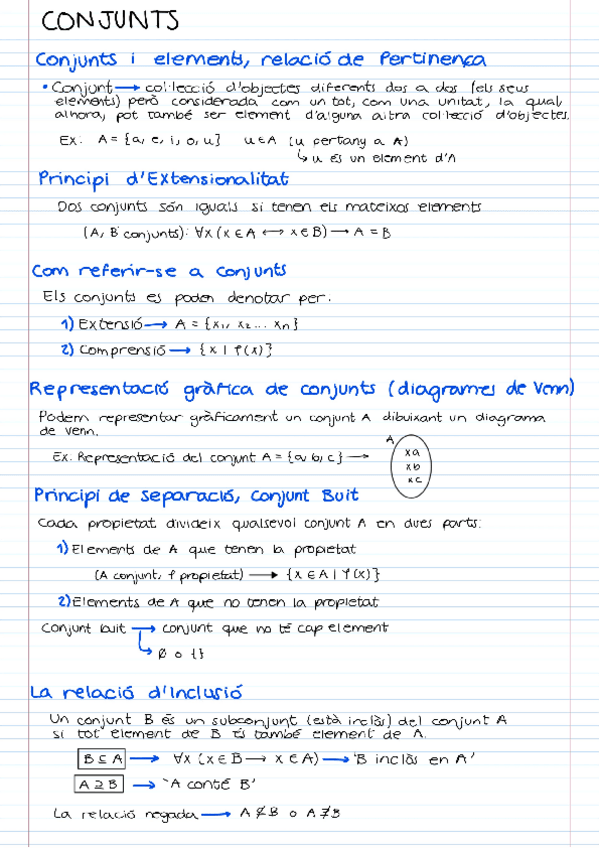 CONJUNTS
Conjunts i elements, relació de Pertinença
• Conjunt → col·lecció d'objectes diferents dos a dos (els seus
elements) però considerada com un tot, com una unitat, la qual,
alhora, pot també ser element d'alguna altra col·lecció d'objectes.
Ex: A = {a, e, i, o, u} u ∈ A (u pertany a A)
↳ u és un element d'A
Principi d'Extensionalitat
Dos conjunts són iguals si tenen els mateixos elements
(A, B conjunts): ∀x (x ∈ A ↔ x ∈ B) → A = B
Com referir-se a conjunts
Els conjunts es poden denotar per.
1) Extensió → A = {x₁, x₂... xₙ}
2) Comprensió → {x | P(x)}
Representació gràfica de conjunts (diagrames de Venn)
Podem representar gràficament un conjunt A dibuixant un diagrama
de venn.
Ex: Representació del conjunt A = {a, b, c} →
A
xa
xb
xc
Principi de Separació, Conjunt Buit
Cada propietat divideix qualsevol conjunt A en dues parts:
1) Elements de A que tenen la propietat
(A conjunt, P propietat) → {x ∈ A | P(x)}
2) Elements de A que no tenen la propietat
Conjunt buit → conjunt que no té cap element
↳ ∅ o {}
La relació d'Inclusió
Un conjunt B és un subconjunt (està inclòs) del conjunt A
si tot element de B és també element de A.
B ⊆ A → ∀x (x ∈ B → x ∈ A) → 'B inclòs en A'
A ⊇ B → 'A conté B'
La relació negada → A ⊈ B o A ⊉ B